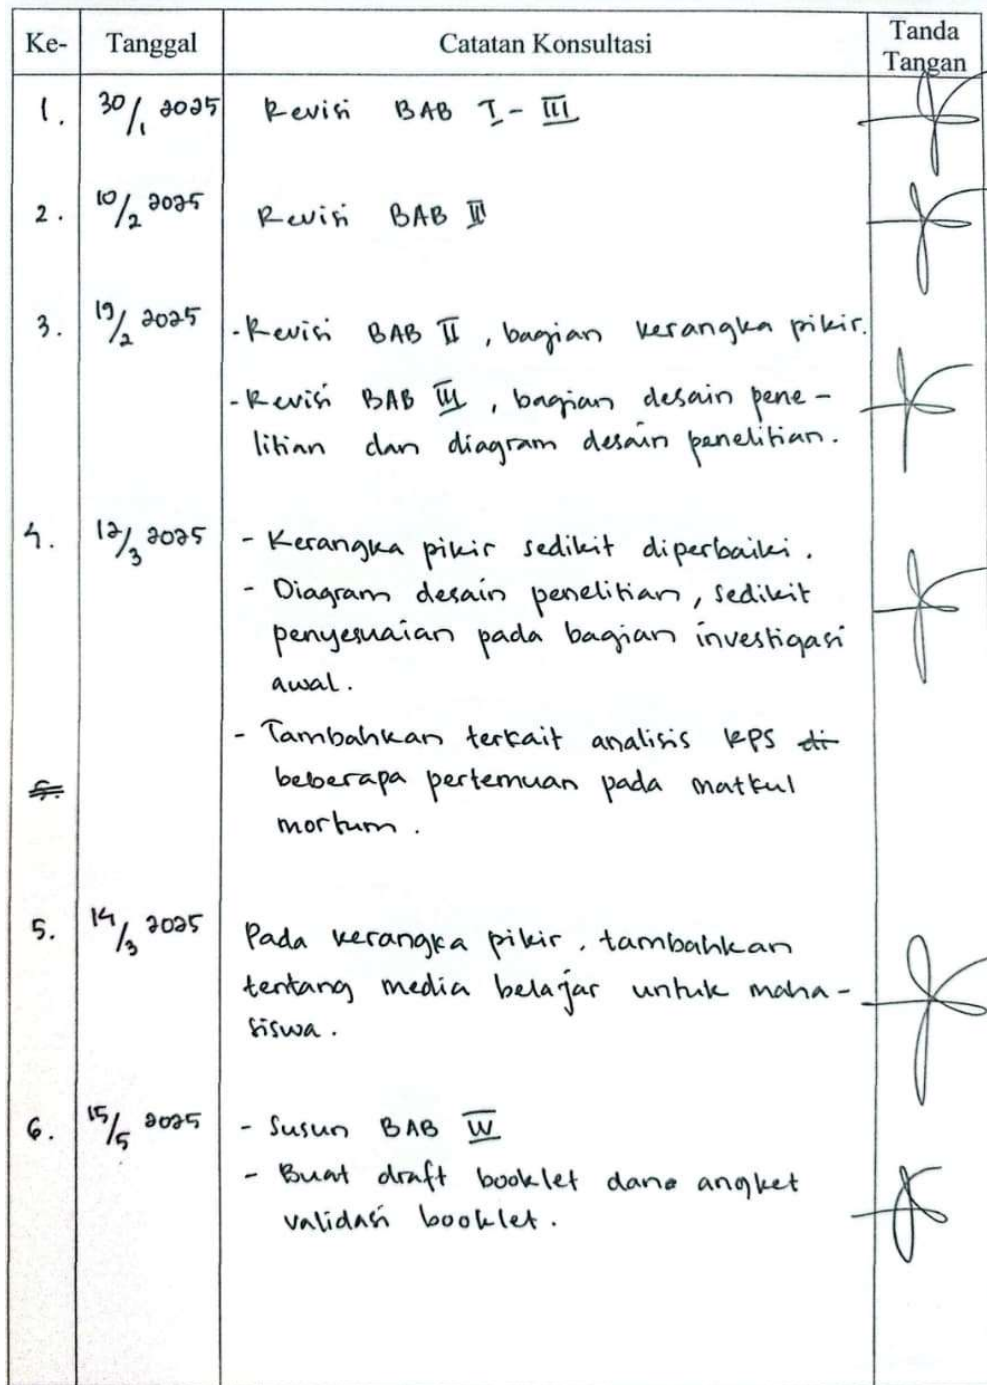 Ke- Tanggal Catatan Konsultasi Tanda Tangan
1. 30/1 2025 Revisi BAB I - III
2. 10/2 2025 Revisi BAB II
3. 19/2 2025 - Revisi BAB II, bagian kerangka pikir.
- Revisi BAB III, bagian desain pene-
litian dan diagram desain penelitian.
4. 12/3 2025 - Kerangka pikir sedikit diperbaiki.
- Diagram desain penelitian, sedikit
penyesuaian pada bagian investigasi
awal.
- Tambahkan terkait analisis KPS di
beberapa pertemuan pada matkul
mortum.
5. 14/3 2025 Pada kerangka pikir, tambahkan
tentang media belajar untuk maha-
siswa.
6. 15/5 2025 - Susun BAB IV
- Buat draft booklet dan angket
validasi booklet.